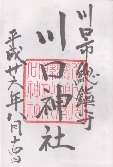 川口市總鎮守
川口神社
平成廿六年八月十四日